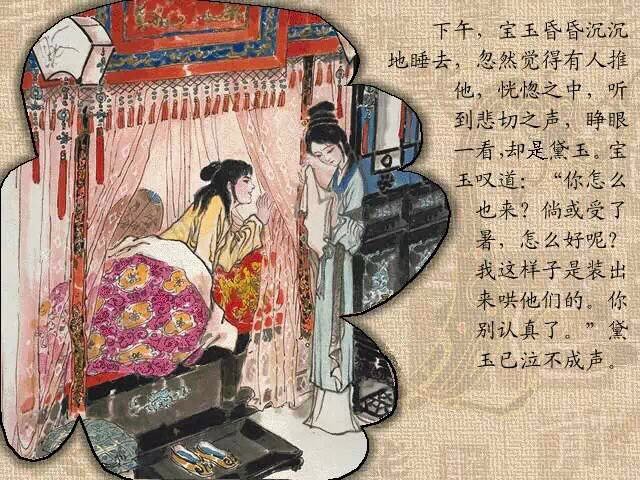 下午，宝玉昏昏沉沉
地睡去，忽然觉得有人推
他，恍惚之中，听
到悲切之声，睁眼
一看,却是黛玉。宝
玉叹道：“你怎么
也来？倘或受了
暑，怎么好呢？
我这样子是装出
来哄他们的。你
别认真了。”黛
玉已泣不成声。